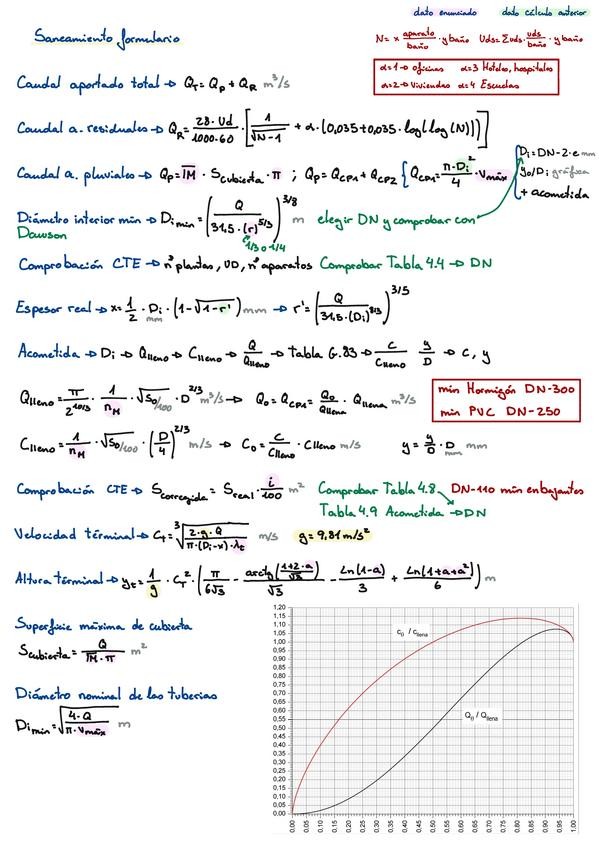 dato enunciado dato cálculo anterior
Saneamiento formulario
N = x aparato/baño · y baño Uds = Σ uds · uds/baño · y baño
α=1 → oficinas α=3 Hoteles, hospitales
α=2 → viviendas α=4 Escuelas
Caudal aportado total → Q_T = Q_P + Q_R m³/s
Caudal a. residuales → Q_R = 28·Ud/1000·60 · [1/√N-1 + α·(0,035+0,035·log(log(N)))]
Caudal a. pluviales → Q_P = IM · S_cubierta · π ; Q_P = Q_CP1 + Q_CP2 { Q_CP1 = π·Di²/4 · v_máx
Di = DN-2·e mm
y0/Di gráfica
+ acometida
Diámetro interior mín → Di mín = (Q/31,5·(r)^5/3)^3/8 m elegir DN y comprobar con
Dawson
1/3 o 1/4
Comprobación CTE → nº plantas, UD, nº aparatos Comprobar Tabla 4.4 → DN
Espesor real → x = 1/2 · Di · (1-√1-r') mm → r' = (Q/31,5·(Di)^8/3)^3/5
mm
Acometida → Di → Qlleno → Clleno → Q/Qlleno → tabla G.83 → C/Clleno y/D → c, y
Qlleno = π/2^10/3 · 1/n_M · √S0/100 · D^2/3 m³/s → Q0 = Q_CP1 = Q0/Qllena · Qllena m³/s
mín Hormigón DN-300
mín PVC DN-250
Clleno = 1/n_M · √S0/100 · (D/4)^2/3 m/s → C0 = C/Clleno · Clleno m/s y = y/D · D mm
mm
Comprobación CTE → S_corregida = S_real · i/100 m² Comprobar Tabla 4.8 DN-110 mín en bajantes
Tabla 4.9 Acometida → DN
Velocidad términal → C_t = ³√2·g·Q/π·(Di-x)·λt m/s g = 9,81 m/s²
Altura términal → y_t = 1/g · C_T² · (π/6√3 - arctg(1+2·a/√3)/√3 - Ln(1-a)/3 + Ln(1+a+a²)/6) m
Superficie máxima de cubierta
S_cubierta = Q/IM·π m²
Diámetro nominal de las tuberias
Di mín = √4·Q/π·v_máx m
1,20
1,15
1,10
1,05
1,00
0,95
0,90
0,85
0,80
0,75
0,70
0,65
0,60
0,55
0,50
0,45
0,40
0,35
0,30
0,25
0,20
0,15
0,10
0,05
0,00
c_0 / c_llena
Q_0 / Q_llena
0.00 0.05 0.10 0.15 0.20 0.25 0.30 0.35 0.40 0.45 0.50 0.55 0.60 0.65 0.70 0.75 0.80 0.85 0.90 0.95 1.00